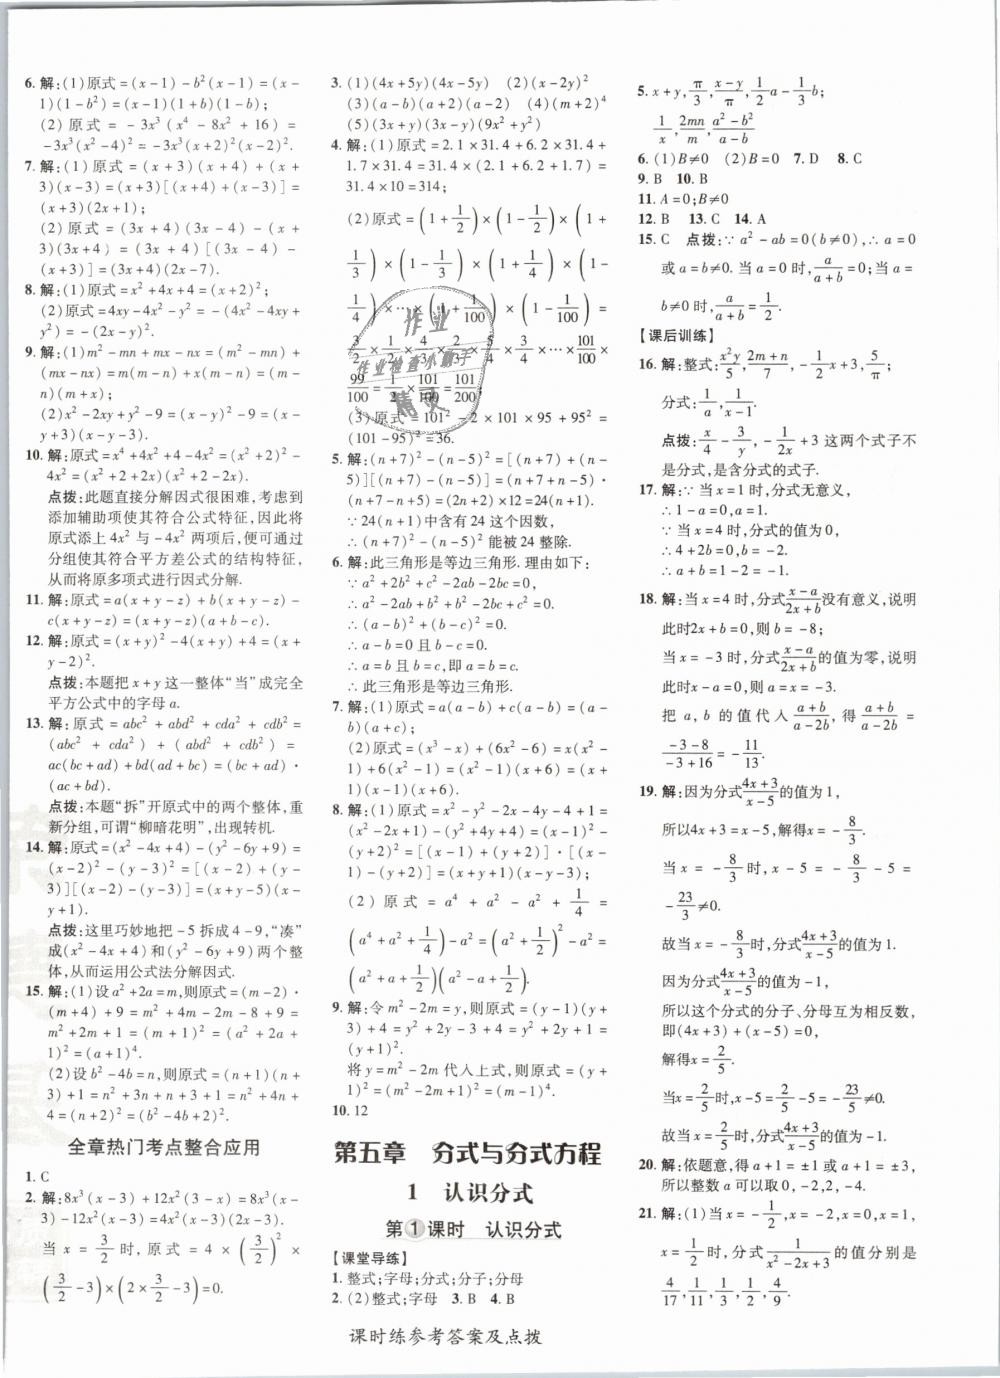 6. 解:(1)原式=(x-1)-b²(x-1)=(x-
1)(1-b²)=(x-1)(1+b)(1-b);
(2) 原式 = -3x³(x⁴-8x²+16)=
-3x³(x²-4)²=-3x³(x+2)²(x-2)².
7. 解:(1)原式=(x+3)(x+4)+(x+
3)(x-3)=(x+3)[(x+4)+(x-3)]=
(x+3)(2x+1);
(2)原式=(3x+4)(3x-4)-(x+
3)(3x+4)=(3x+4)[(3x-4)-
(x+3)]=(3x+4)(2x-7).
8. 解:(1)原式=x²+4x+4=(x+2)²;
(2)原式=4xy-4x²-y²=-(4x²-4xy+
y²)=-(2x-y)².
9. 解:(1)m²-mn+mx-nx=(m²-mn)+
(mx-nx)=m(m-n)+x(m-n)=(m-
n)(m+x);
(2)x²-2xy+y²-9=(x-y)²-9=(x-
y+3)(x-y-3).
10. 解:原式=x⁴+4x²+4-4x²=(x²+2)²-
4x²=(x²+2+2x)(x²+2-2x).
点拨:此题直接分解因式很困难,考虑到
添加辅助项使其符合公式特征,因此将
原式添上4x²与-4x²两项后,便可通过
分组使其符合平方差公式的结构特征,
从而将原多项式进行因式分解.
11. 解:原式=a(x+y-z)+b(x+y-z)-
c(x+y-z)=(x+y-z)(a+b-c).
12. 解:原式=(x+y)²-4(x+y)+4=(x+
y-2)².
点拨:本题把x+y这一整体“当”成完全
平方公式中的字母a.
13. 解:原式=abc²+abd²+cda²+cdb²=
(abc²+cda²)+(abd²+cdb²)=
ac(bc+ad)+bd(ad+bc)=(bc+ad)·
(ac+bd).
点拨:本题“拆”开原式中的两个整体,重
新分组,可谓“柳暗花明”,出现转机.
14. 解:原式=(x²-4x+4)-(y²-6y+9)=
(x-2)²-(y-3)²=[(x-2)+(y-
3)][(x-2)-(y-3)]=(x+y-5)(x-
y+1).
点拨:这里巧妙地把-5拆成4-9,“凑”
成(x²-4x+4)和(y²-6y+9)两个整
体,从而运用公式法分解因式.
15. 解:(1)设a²+2a=m,则原式=(m-2)·
(m+4)+9=m²+4m-2m-8+9=
m²+2m+1=(m+1)²=(a²+2a+
1)²=(a+1)⁴.
(2)设b²-4b=n,则原式=(n+1)(n+
3)+1=n²+3n+n+3+1=n²+4n+
4=(n+2)²=(b²-4b+2)².
全章热门考点整合应用
1. C
2. 解:8x³(x-3)+12x²(3-x)=8x³(x-
3)-12x²(x-3)=4x²(x-3)(2x-3).
当x=3/2时,原式=4×(3/2)²×
(3/2-3)×(2×3/2-3)=0.
3. (1)(4x+5y)(4x-5y) (2)(x-2y)²
(3)(a-b)(a+2)(a-2) (4)(m+2)⁴
(5)(3x+y)(3x-y)(9x²+y²)
4. 解:(1)原式=2.1×31.4+6.2×31.4+
1.7×31.4=31.4×(2.1+6.2+1.7)=
31.4×10=314;
(2)原式=(1+1/2)×(1-1/2)×(1+
1/3)×(1-1/3)×(1+1/4)×(1-
1/4)×…×(1+1/100)×(1-1/100)=
3/2×1/2×4/3×2/3×5/4×3/4×…×101/100×
99/100=1/2×101/100=101/200;
(3)原式=101²-2×101×95+95²=
(101-95)²=36.
5. 解:(n+7)²-(n-5)²=[(n+7)+(n-
5)][(n+7)-(n-5)]=(n+7+n-5)·
(n+7-n+5)=(2n+2)×12=24(n+1).
∵24(n+1)中含有24这个因数,
∴(n+7)²-(n-5)²能被24整除.
6. 解:此三角形是等边三角形. 理由如下:
∵a²+2b²+c²-2ab-2bc=0,
∴a²-2ab+b²+b²-2bc+c²=0.
∴(a-b)²+(b-c)²=0.
∴a-b=0且b-c=0.
∴a=b且b=c,即a=b=c.
∴此三角形是等边三角形.
7. 解:(1)原式=a(a-b)+c(a-b)=(a-
b)(a+c);
(2)原式=(x³-x)+(6x²-6)=x(x²-
1)+6(x²-1)=(x²-1)(x+6)=(x+
1)(x-1)(x+6).
8. 解:(1)原式=x²-y²-2x-4y-4+1=
(x²-2x+1)-(y²+4y+4)=(x-1)²-
(y+2)²=[(x-1)+(y+2)]·[(x-
1)-(y+2)]=(x+y+1)(x-y-3);
(2)原式=a⁴+a²-a²+1/4=
(a⁴+a²+1/4)-a²=(a²+1/2)²-a²=
(a²+a+1/2)(a²-a+1/2).
9. 解:令m²-2m=y,则原式=y(y+
3)+4=y²+2y-3+4=y²+2y+1=
(y+1)².
将y=m²-2m代入上式,则原式=(y+
1)²=(m²-2m+1)²=(m-1)⁴.
10. 12
第五章 分式与分式方程
1 认识分式
第1课时 认识分式
【课堂导练】
1. 整式;字母;分式;分子;分母
2. (2)整式;字母 3. B 4. B
5. x+y,π/3,(x-y)/π,1/2a-1/3b;
1/x,2mn/m,(a²-b²)/(a-b)
6. (1)B≠0 (2)B=0 7. D 8. C
9. B 10. B
11. A=0;B≠0
12. B 13. C 14. A
15. C 点拨:∵a²-ab=0(b≠0),∴a=0
或a=b≠0. 当a=0时,a/(a+b)=0;当a=
b≠0时,a/(a+b)=1/2.
【课后训练】
16. 解:整式:x²y/5,(2m+n)/7,-1/2x²+3,5/π;
分式:1/a,1/(x-1).
点拨:x/4-3/y,-1/a+3这两个式子不
是分式,是含分式的式子.
17. 解:∵当x=1时,分式无意义,
∴1-a=0,a=1.
∵当x=4时,分式的值为0,
∴4+2b=0,b=-2.
∴a+b=1-2=-1.
18. 解:当x=4时,分式(x-a)/(2x+b)没有意义,说明
此时2x+b=0,则b=-8;
当x=-3时,分式(x-a)/(2x+b)的值为零,说明
此时x-a=0,则a=x=-3.
把a,b的值代入(a+b)/(a-2b),得(a+b)/(a-2b)=
(-3-8)/(-3+16)=-11/13.
19. 解:因为分式(4x+3)/(x-5)的值为1,
所以4x+3=x-5,解得x=-8/3.
当x=-8/3时,x-5=-8/3-5=
-23/3≠0.
故当x=-8/3时,分式(4x+3)/(x-5)的值为1.
因为分式(4x+3)/(x-5)的值为-1,
所以这个分式的分子、分母互为相反数,
即(4x+3)+(x-5)=0,
解得x=2/5.
当x=2/5时,x-5=2/5-5=-23/5≠0.
故当x=2/5时,分式(4x+3)/(x-5)的值为-1.
20. 解:依题意,得a+1=±1或a+1=±3,
所以整数a可以取0,-2,2,-4.
21. 解:(1)当x=-1/2,0,1/2,1时,
分式1/(x²-2x+3)的值分别是
4/17,1/11,4/11,4/9.
作业
作业检查小助手
精灵
课时练参考答案及点拨